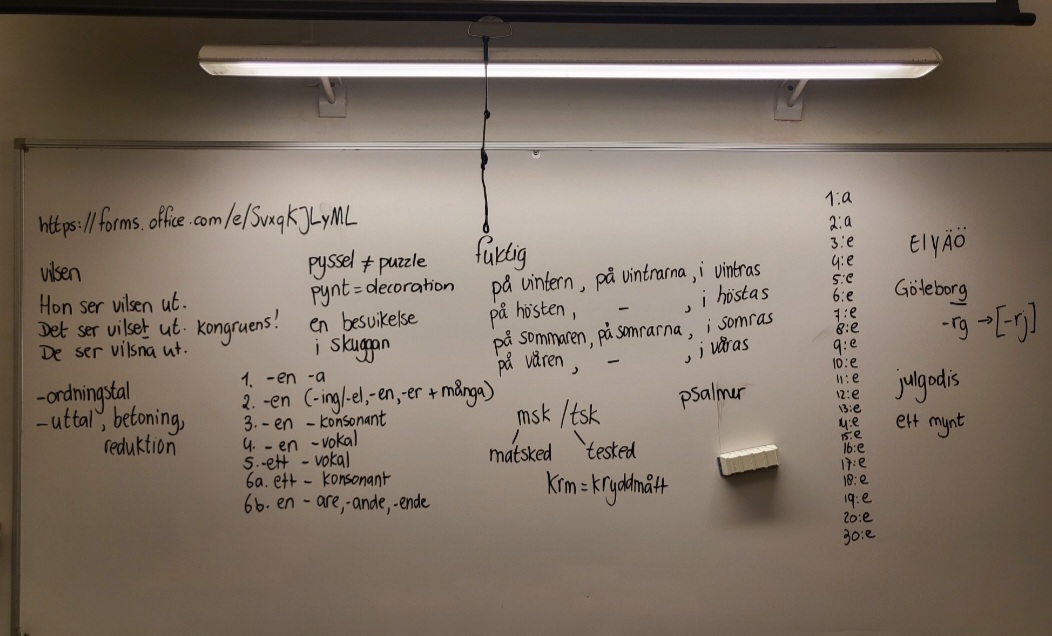 https://forms.office.com/e/SvxqKJLyML
vilsen
Hon ser vilsen ut.
Det ser vilset ut. kongruens!
De ser vilsna ut.
-ordningstal
-uttal, betoning,
reduktion
pyssel ≠ puzzle
pynt = decoration
en besvikelse
i skuggan
1. -en -a
2. -en (-ing/-el,-en,-er + många)
3. -en - konsonant
4. -en -vokal
5. -ett - vokal
6a. ett - konsonant
6b. en - are,-ande,-ende
fuktig
på vintern, på vintrarna, i vintras
på hösten, - , i höstas
på sommaren, på somrarna, i somras
på våren, - , i våras
msk /tsk
matsked tesked
krm = kryddmått
psalmer
1:a
2:a
3:e
4:e
5:e
6:e
7:e
8:e
9:e
10:e
11:e
12:e
13:e
14:e
15:e
16:e
17:e
18:e
19:e
20:e
30:e
EIYÄÖ
Göteborg
-rg → [-rj]
julgodis
ett mynt